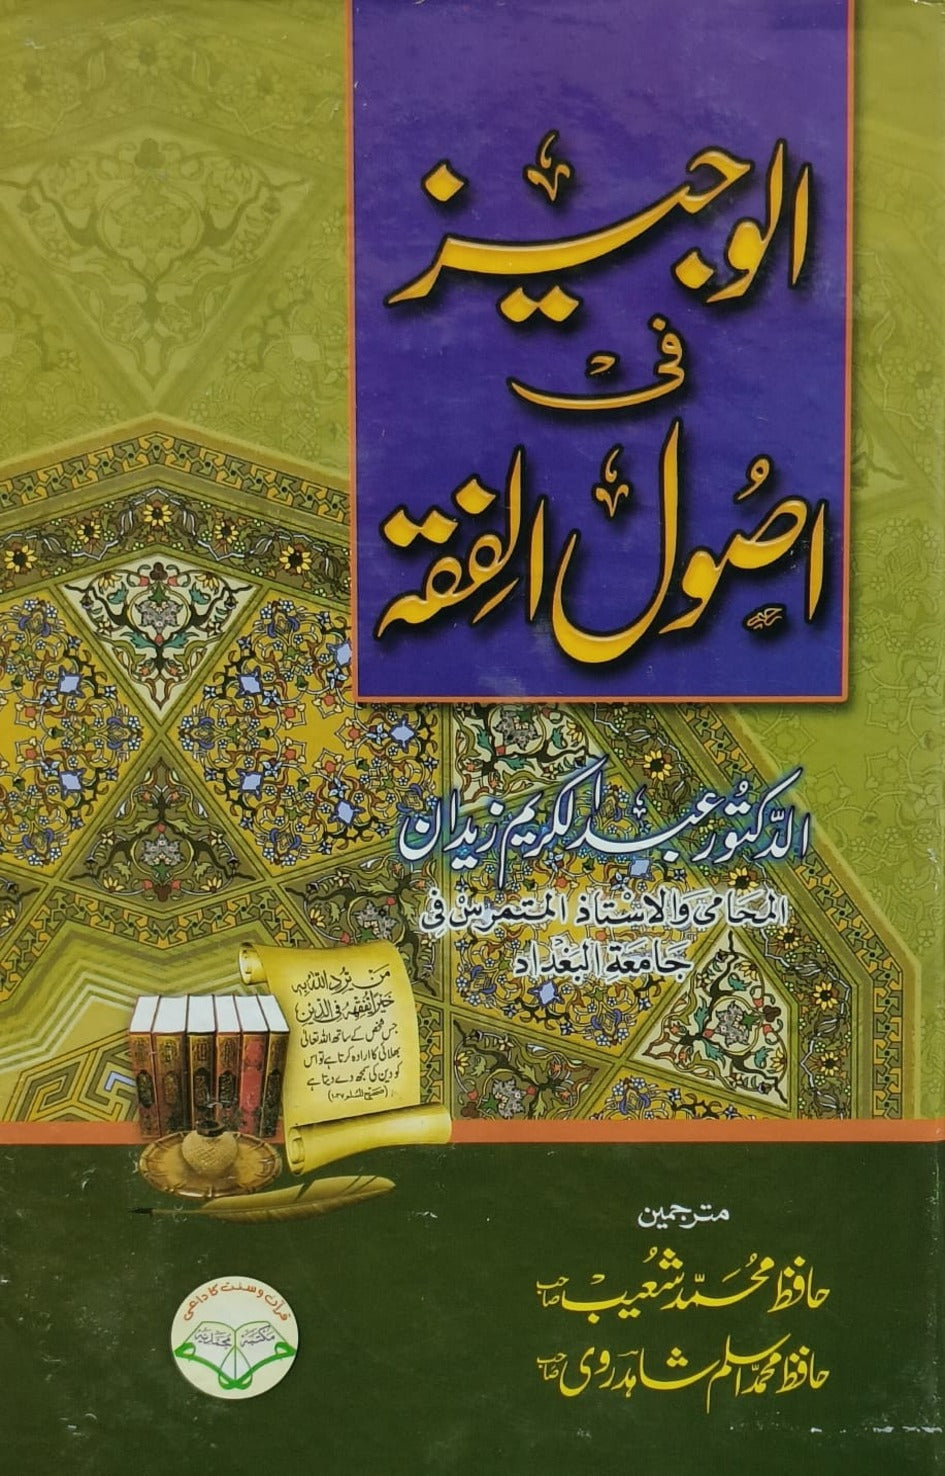 الوجیز
فی
اصُول الفِقہ
الدّکتُور عبدالکریم زیدان
المحامی وَالاسْتاذ المتمرس فی
جَامعَة البغْداد
مَن یُّرِدِ اللّٰهُ بِهٖ
خَیْرًا یُّفَقِّهْهُ فِی الدِّیْنِ
جس شخص کے ساتھ اللہ تعالیٰ
بھلائی کا ارادہ کرتا ہے تو اس
کو دین کی سمجھ دے دیتا ہے
(صحیح المسلم ۱۰۳۷)
مترجمین
حافظ محمّد شعُیب صاحب
حافظ محمد اسلم شاہدروی صاحب
قرآن و سنت کا داعی
مکتبہ محمدیہ